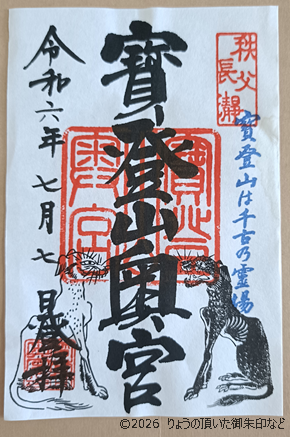 秩父
長瀞
寳登山は千古乃霊場
寳登山奥宮
令和六年七月七日登拝
©2026 りょうの頂いた御朱印など